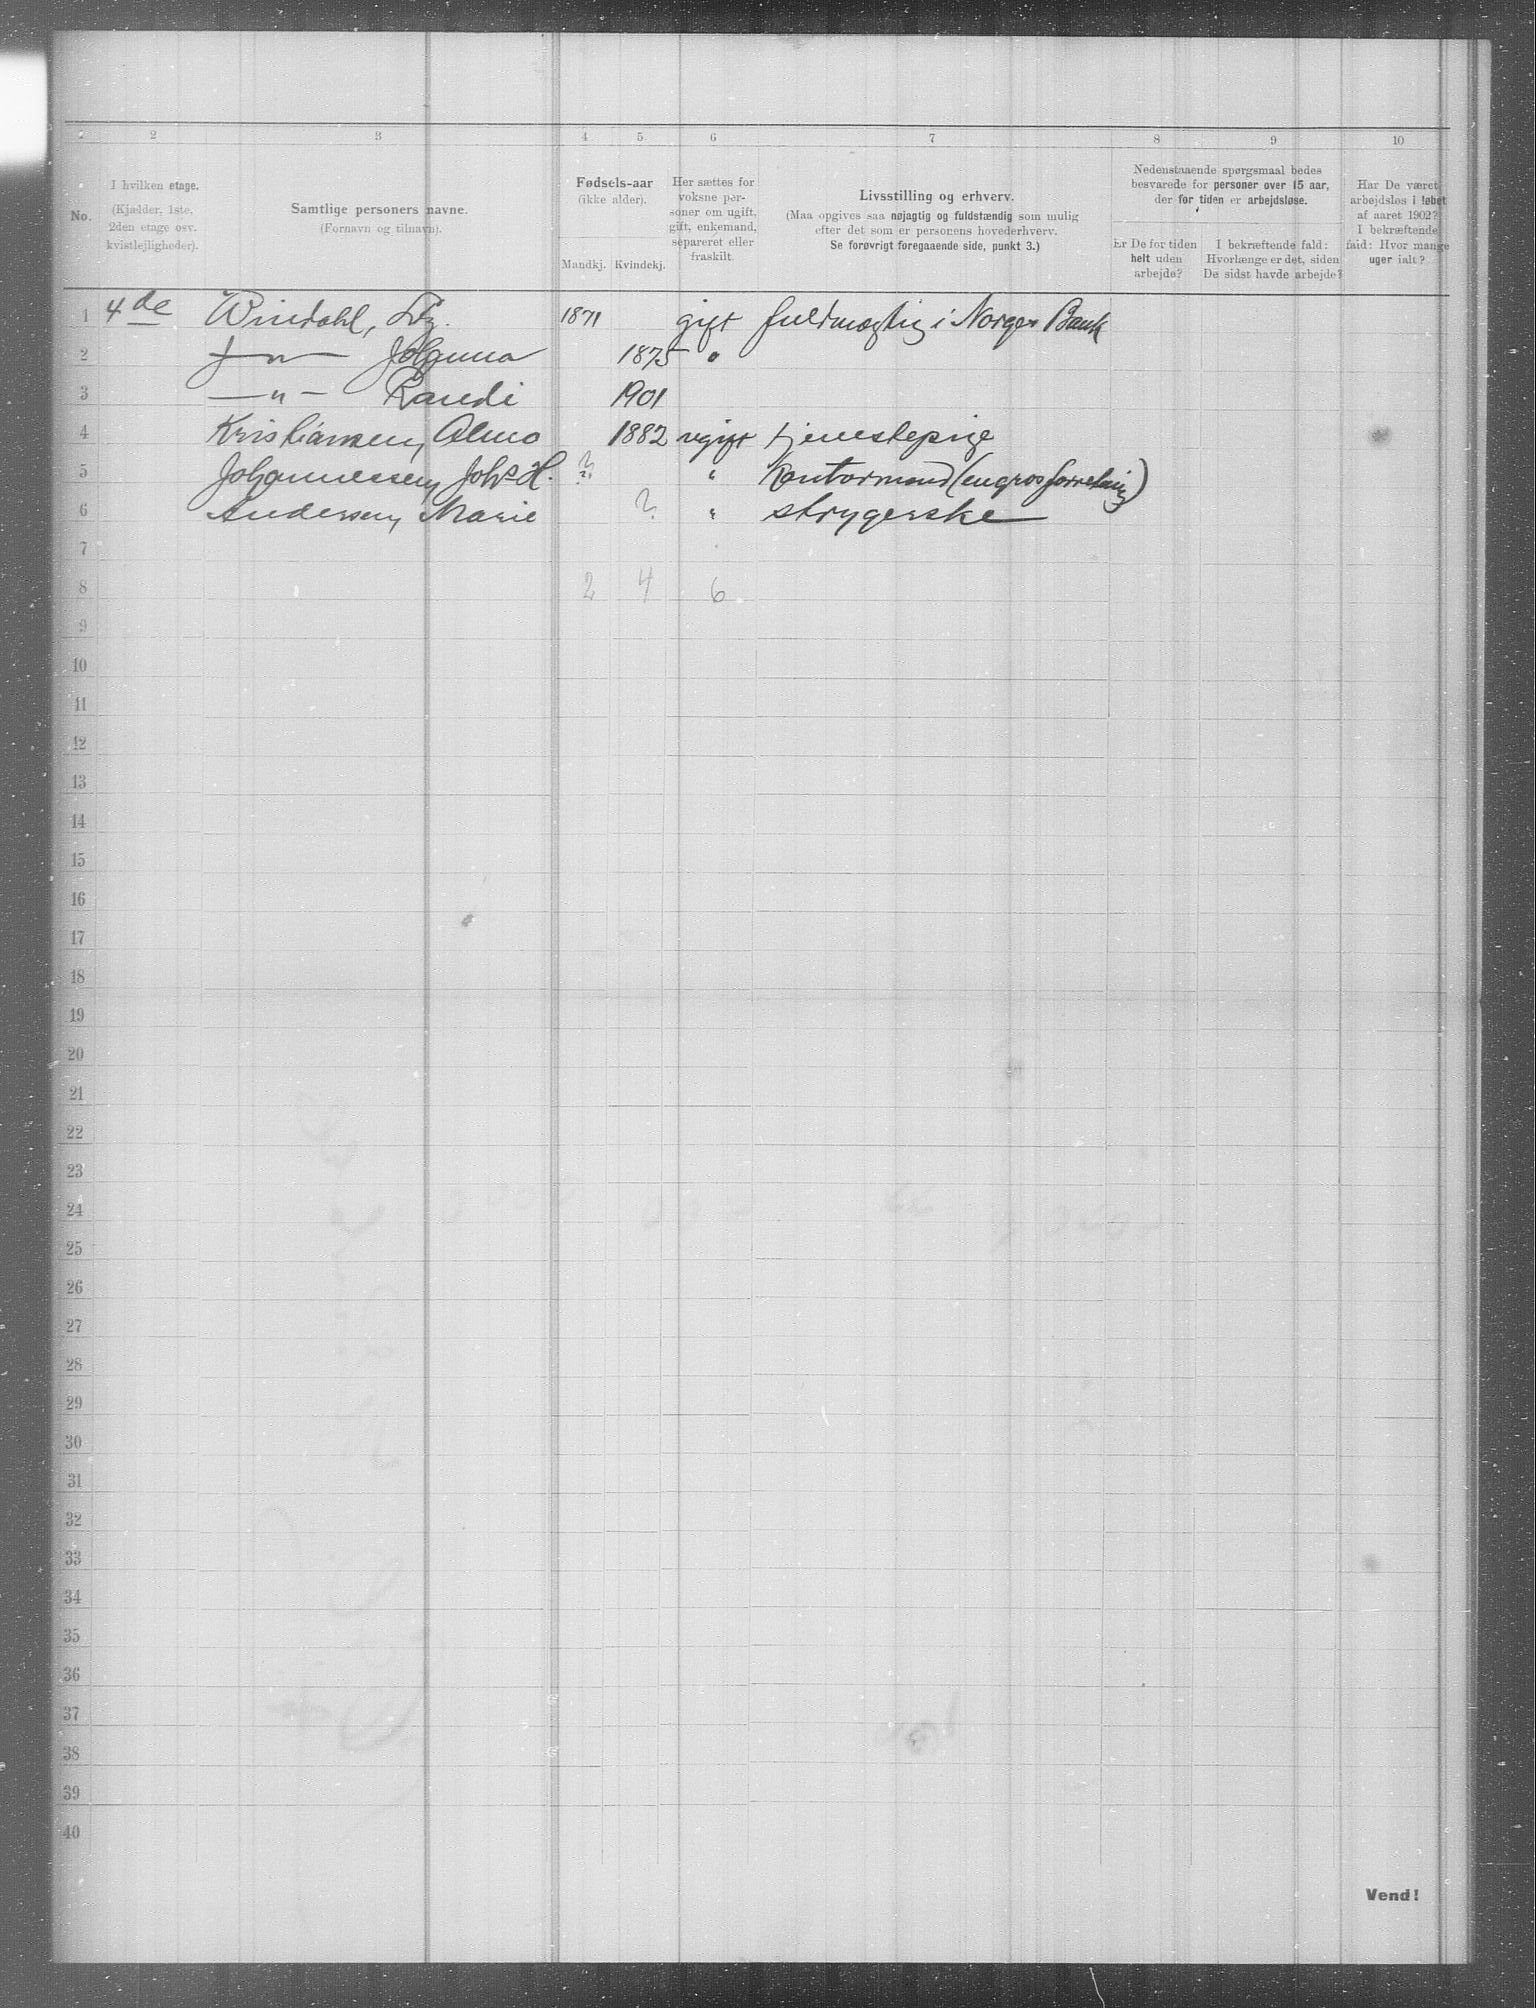 2 3 4 5 6 7 8 9 10
No.
I hvilken etage.
(Kjælder, 1ste,
2den etage osv.
kvistlejligheder).
Samtlige personers navne.
(Fornavn og tilnavn).
Fødsels-aar
(ikke alder).
Mandkj. Kvindekj.
Her sættes for
voksne per-
soner om ugift,
gift, enkemand,
separeret eller
fraskilt.
Livsstilling og erhverv.
(Maa opgives saa nøjagtig og fuldstændig som mulig
efter det som er personens hovederhverv.
Se forøvrigt foregaaende side, punkt 3.)
Nedenstaaende spørgsmaal bedes
besvarede for personer over 15 aar,
der for tiden er arbejdsløse.
Er De for tiden
helt uden
arbejde?
I bekræftende fald:
Hvorlænge er det, siden
De sidst havde arbejde?
Har De været
arbejdsløs i løbet
af aaret 1902?
I bekræftende
fald: Hvor mange
uger ialt?
1 4de Windahl, 1871 gift fuldmægtig i Norges Bank
2 —„— 1875 „
3 —„— Randi 1901
4 Kristiansen, 1882 ugift tjenestepige
5 Johannessen, Johs H. ? „ Kontormand (engrosforretning)
6 Andersen, Marie ? „ strygerske
7
8 2 4 6
9
10
11
12
13
14
15
16
17
18
19
20
21
22
23
24
25
26
27
28
29
30
31
32
33
34
35
36
37
38
39
40
Vend!